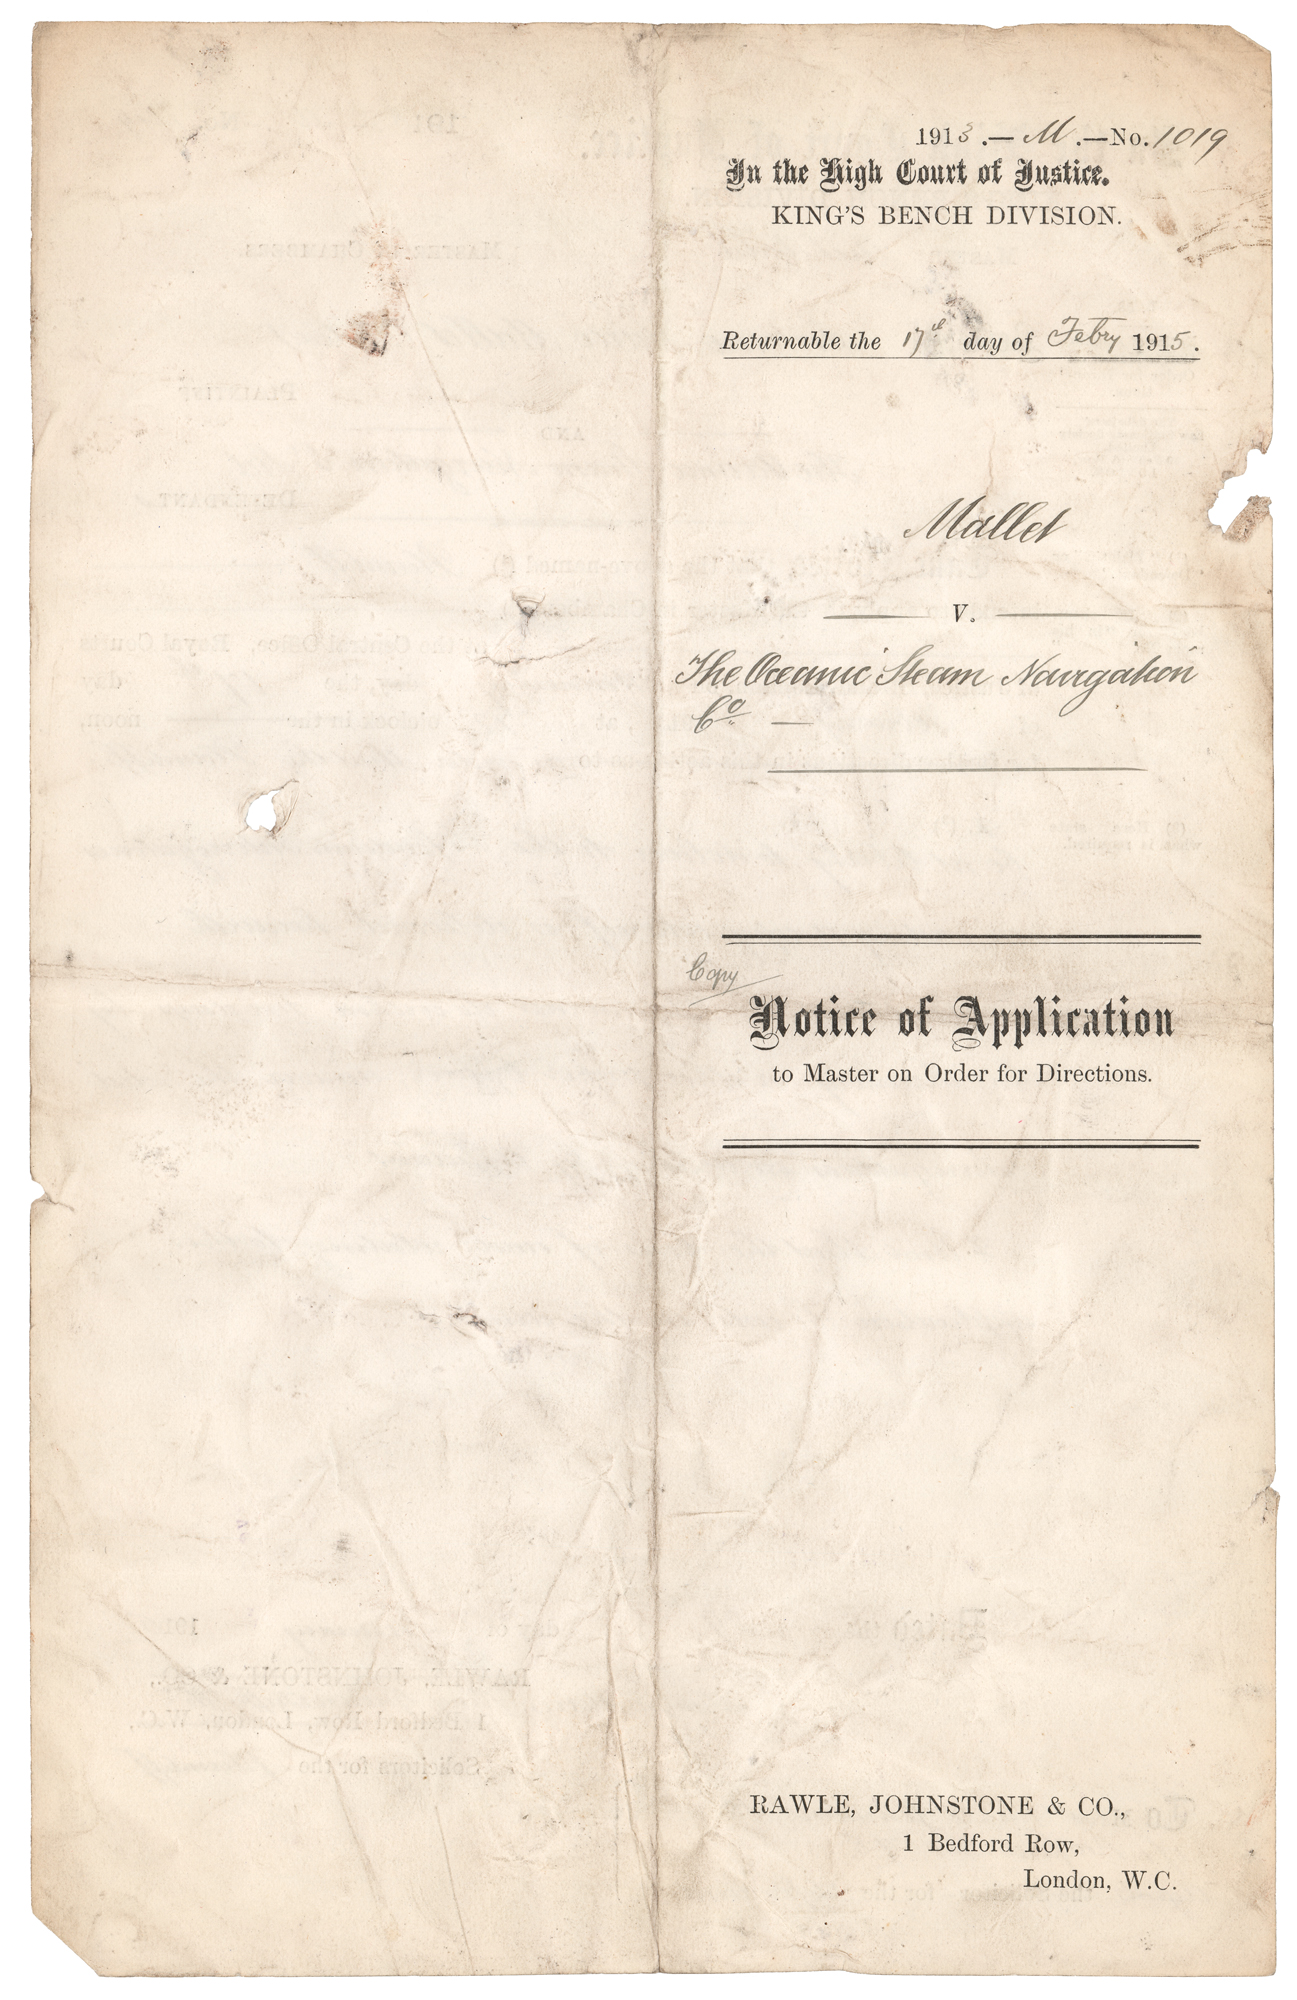 1913.— M.—No. 1019
In the High Court of Justice.
KING'S BENCH DIVISION.
Returnable the 17th day of Febry 1915.
Mallet
V.
The Oceanic Steam Navigation
Co —
Copy
Notice of Application
to Master on Order for Directions.
RAWLE, JOHNSTONE & CO.,
1 Bedford Row,
London, W.C.